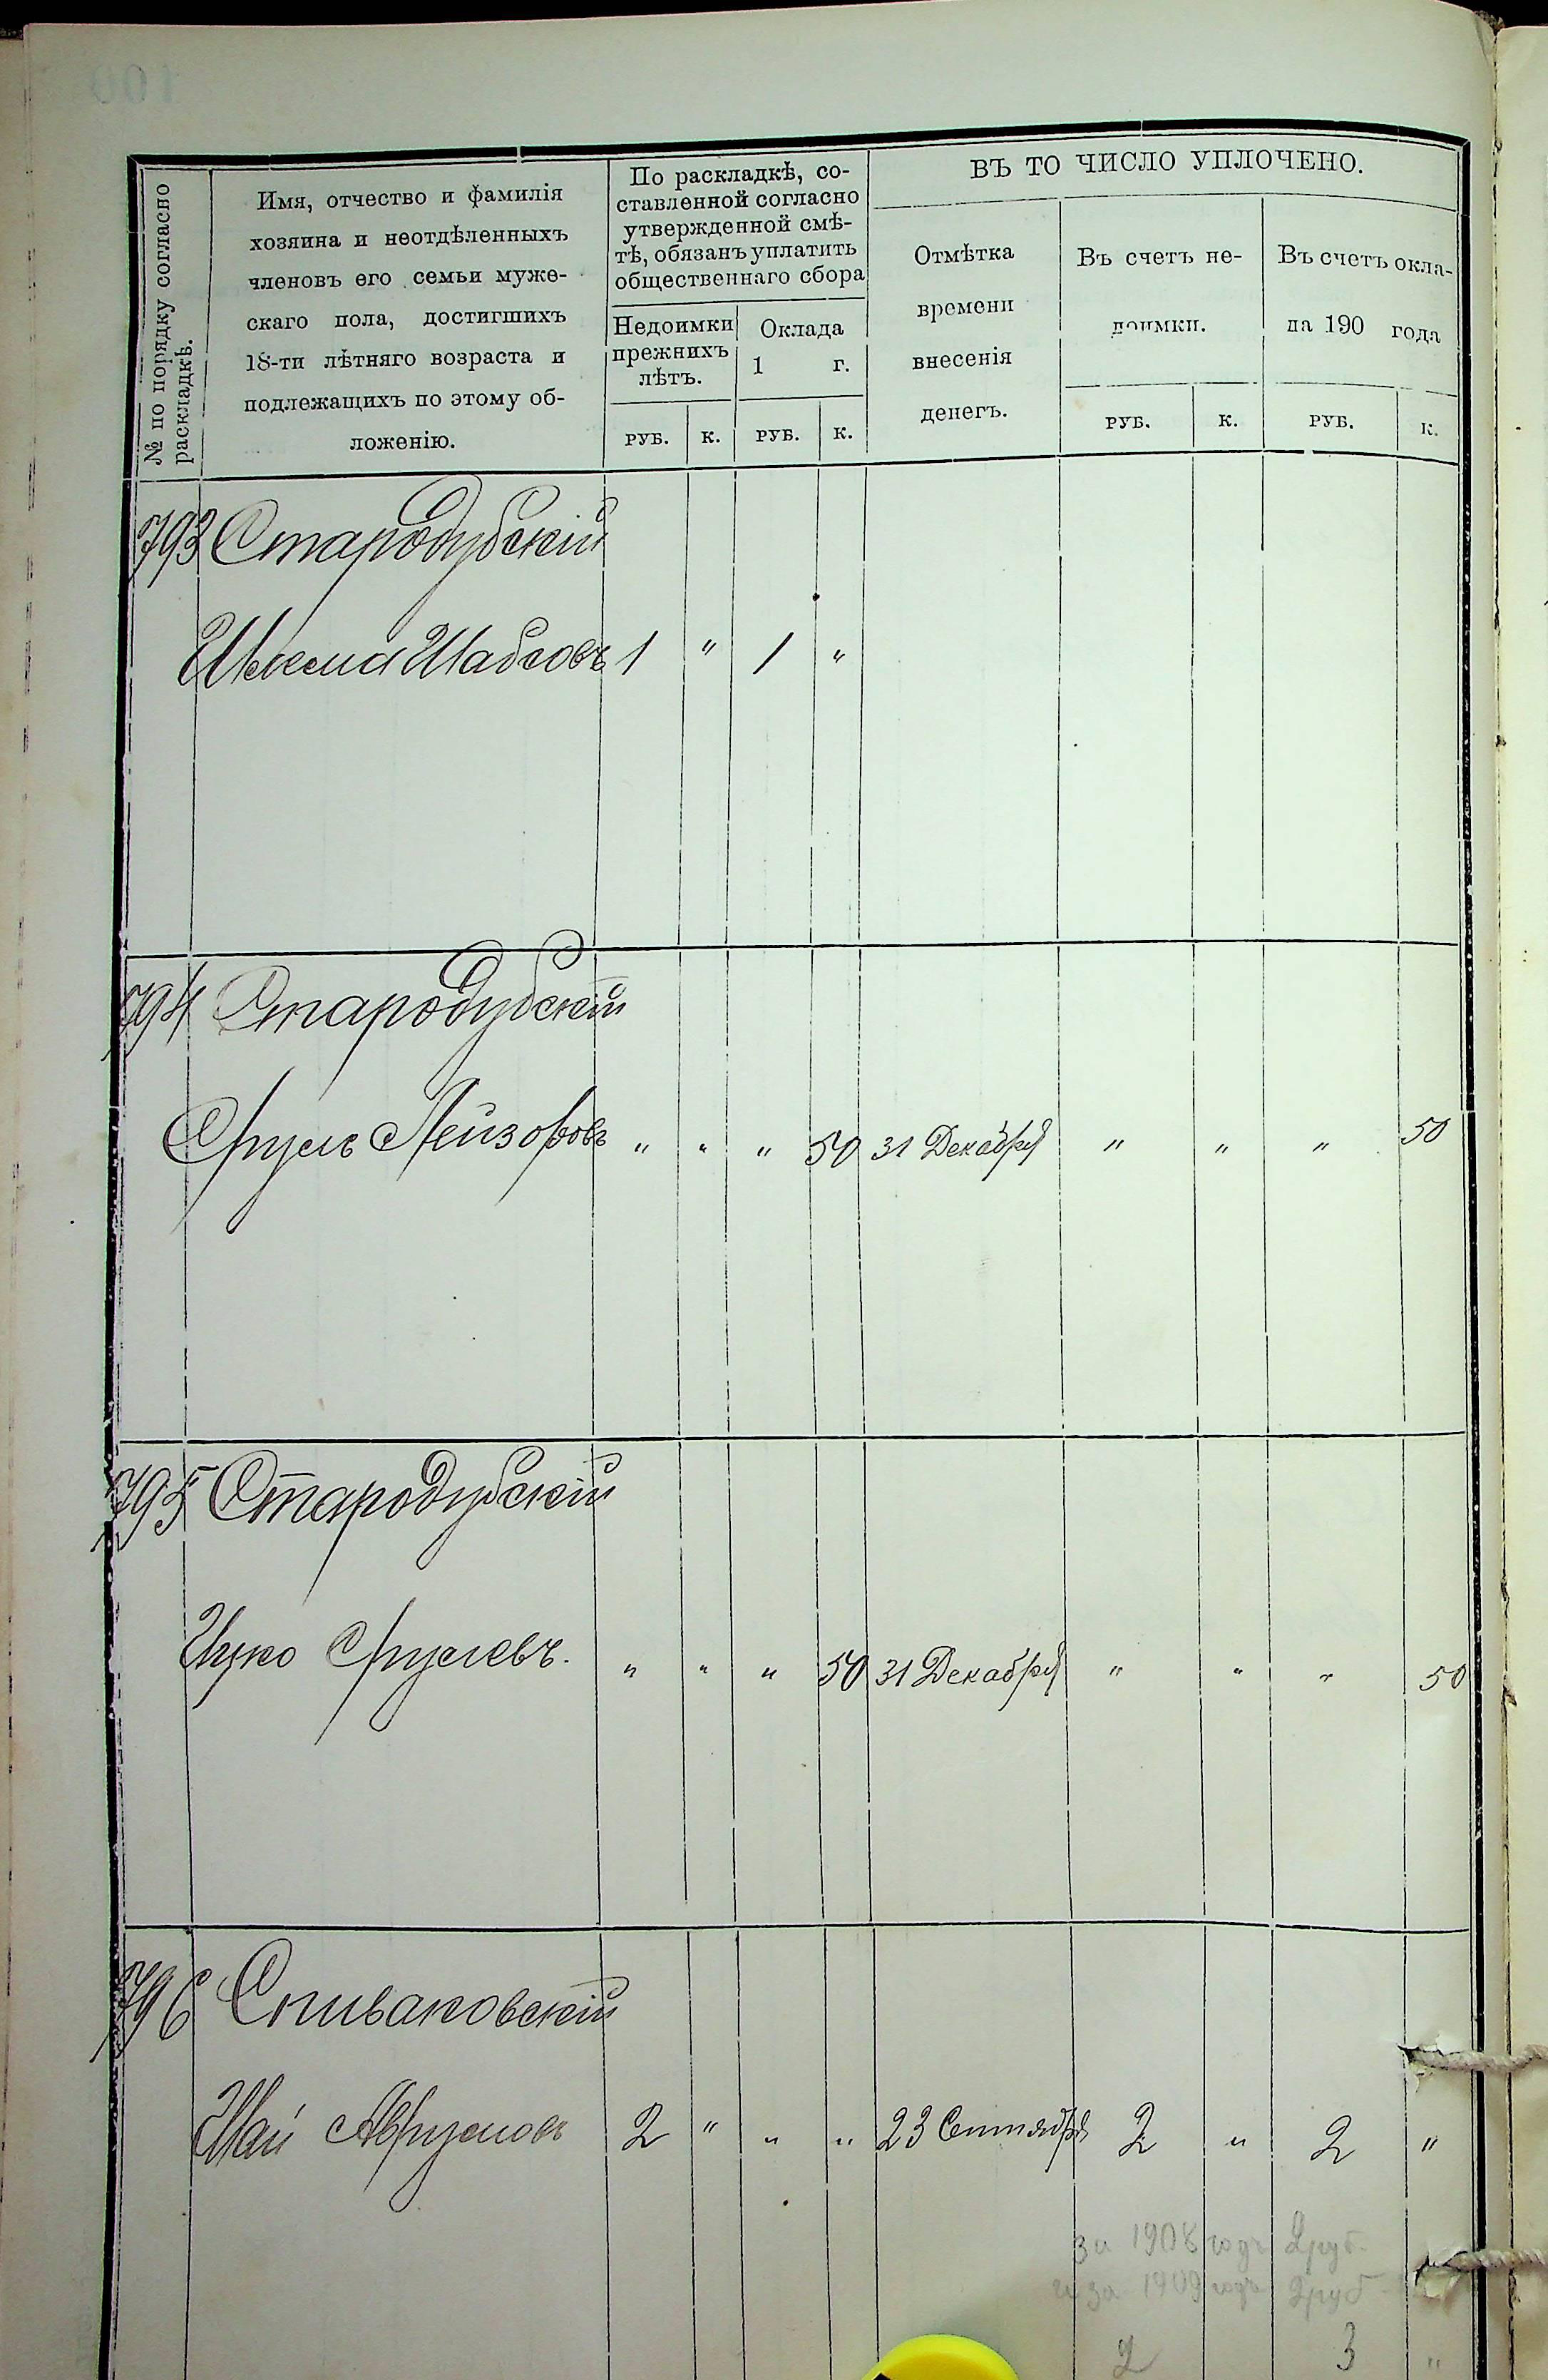 № по порядку согласно
раскладкѣ.
Имя, отчество и фамилія
хозяина и неотдѣленныхъ
членовъ его семьи муже-
скаго пола, достигшихъ
18-ти лѣтняго возраста и
подлежащихъ по этому об-
ложенію.
По раскладкѣ, со-
ставленной согласно
утвержденной смѣ-
тѣ, обязанъ уплатить
общественнаго сбора
Недоимки
прежнихъ
лѣтъ.
Оклада
1 г.
РУБ. К. РУБ. К.
ВЪ ТО ЧИСЛО УПЛОЧЕНО.
Отмѣтка
времени
внесенія
денегъ.
Въ счетъ не-
доимки.
Въ счетъ окла-
на 190 года
РУБ. К. РУБ. К.
793 Стародубскій
Шлема 1 " 1 "
794 Стародубскій
Сруль Лейзоровъ " " " 50 31 Декабря " " " 50
795 Стародубскій
Ицко Срулевъ. " " " 50 31 Декабря " " " 50
796 Спиваковскій
Шай Аврумовъ 2 " " " 23 Сентября 2 " 2 "
за 1908 годъ 2 руб.
и за 1909 годъ 2 руб
2 3 "